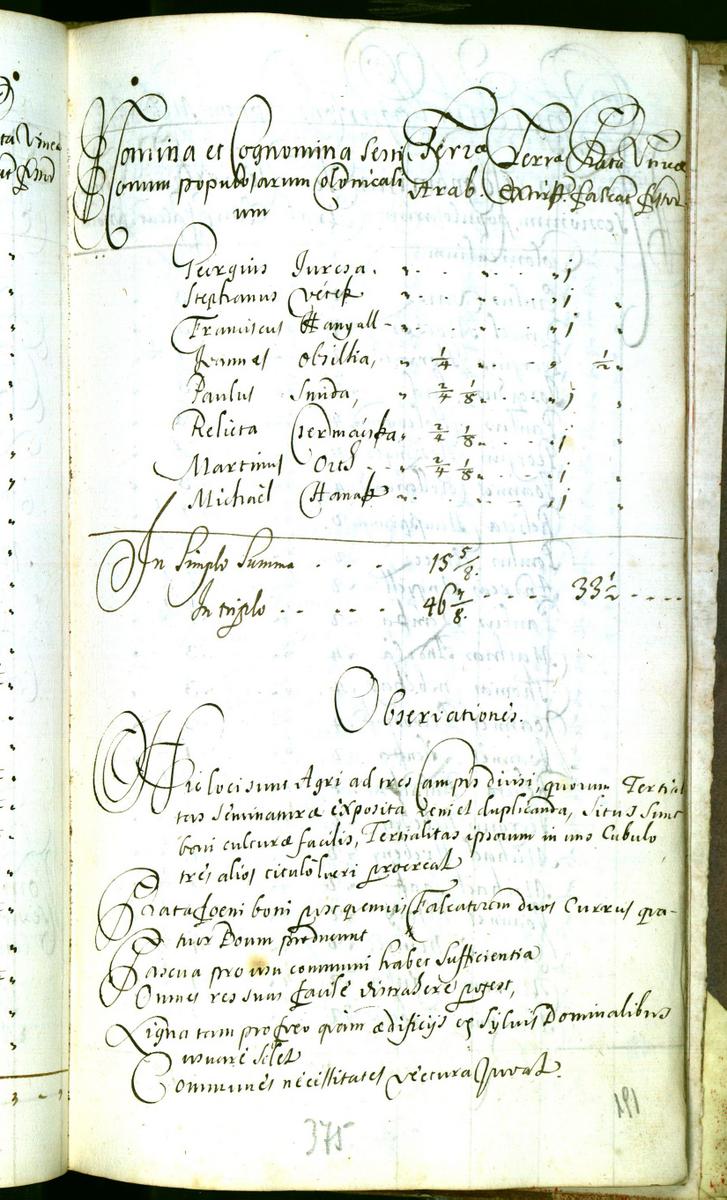 Nomina et Cognomina Sessi Terræ Terræ Prata Vineæ
onum populosarum Colonicali Arab. Extirp. falcat. foss
um
Georgius Juresa . " . . " . . " j
Stephanus " . . " . . " j "
Franciscus Hangall - " . . . . " j "
Joannes " 1/4 " . . " 1/2 "
Paulus Smida, " 2/4 1/8 " . . " j "
Relicta Czermaiska " 2/4 1/8 " . . j "
Martinus . . " 2/4 1/8 " . . " j "
Michaël Hanak " . . " j "
In Simplo Summa . . . . 15 5/8
In triplo . . . . . 46 7/8 . . . . 33 1/2 . . . .
Observationes.
Hic loci sunt Agri ad tres Campos divisi, quorum Tertiali
tas seminaturæ exposita venit duplicanda, Situs sunt
boni culturæ facilis, Tertialitas ipsorum in uno Cubulo
tres alios procreat
Prata foeni boni post quemvis Falcatorem duos Currus qua-
tuor Boum producunt
Pascua pro usu communi habet Sufficientia
Omnes res suas facile distrahere potest,
Ligna tam pro foco quam ædificijs ex Sylvis Dominalibus
usuare solet
Communes necessitates vectura Juvat.
375
191